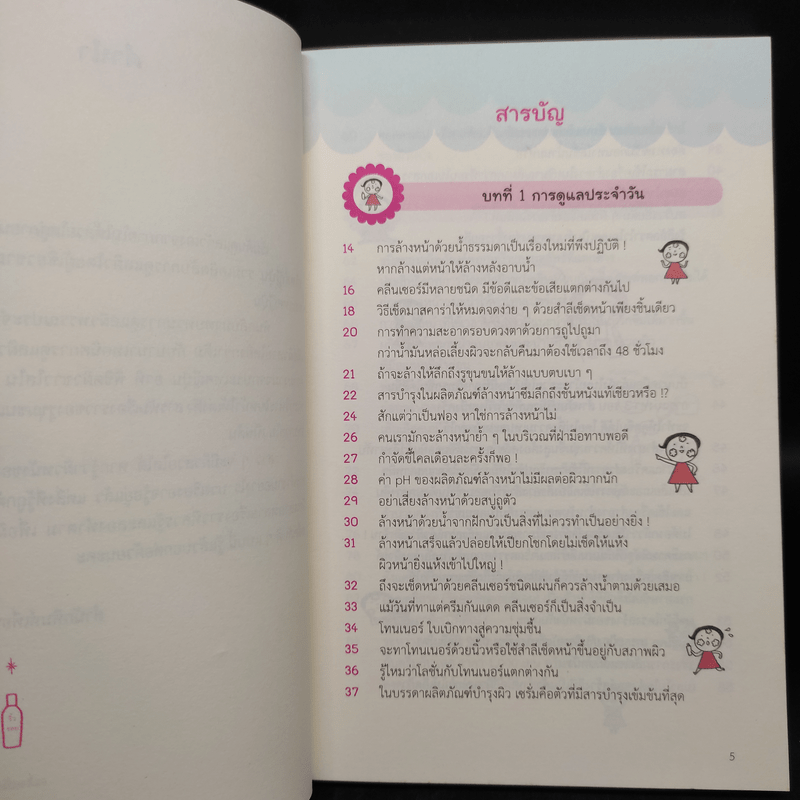 สารบัญ
บทที่ 1 การดูแลประจำวัน
14 การล้างหน้าด้วยน้ำธรรมดาเป็นเรื่องใหม่ที่พึงปฏิบัติ !
หากล้างแต่หน้าให้ล้างหลังอาบน้ำ
16 คลีนเซอร์มีหลายชนิด มีข้อดีและข้อเสียแตกต่างกันไป
18 วิธีเช็ดมาสคาร่าให้หมดจดง่าย ๆ ด้วยสำลีเช็ดหน้าเพียงชิ้นเดียว
20 การทำความสะอาดรอบดวงตาด้วยการถูไปถูมา
กว่าน้ำมันหล่อเลี้ยงผิวจะกลับคืนมาต้องใช้เวลาถึง 48 ชั่วโมง
21 ถ้าจะล้างให้ลึกถึงรูขุมขนให้ล้างแบบตบเบา ๆ
22 สารบำรุงในผลิตภัณฑ์ล้างหน้าซึมลึกถึงชั้นหนังแท้เชียวหรือ !?
24 สักแต่ว่าเป็นฟอง หาใช่การล้างหน้าไม่
26 คนเรามักจะล้างหน้าย้ำ ๆ ในบริเวณที่ฝ่ามือทาบพอดี
27 กำจัดขี้ไคลเดือนละครั้งก็พอ !
28 ค่า pH ของผลิตภัณฑ์ล้างหน้าไม่มีผลต่อผิวมากนัก
29 อย่าเสี่ยงล้างหน้าด้วยสบู่ถูตัว
30 ล้างหน้าด้วยน้ำจากฝักบัวเป็นสิ่งที่ไม่ควรทำเป็นอย่างยิ่ง !
31 ล้างหน้าเสร็จแล้วปล่อยให้เปียกโชกโดยไม่เช็ดให้แห้ง
ผิวหน้ายิ่งแห้งเข้าไปใหญ่ !
32 ถึงจะเช็ดหน้าด้วยคลีนเซอร์ชนิดแผ่นก็ควรล้างน้ำตามด้วยเสมอ
33 แม้วันที่ทาแต่ครีมกันแดด คลีนเซอร์ก็เป็นสิ่งจำเป็น
34 โทนเนอร์ ใบเบิกทางสู่ความชุ่มชื้น
35 จะทาโทนเนอร์ด้วยนิ้วหรือใช้สำลีเช็ดหน้าขึ้นอยู่กับสภาพผิว
36 รู้ไหมว่าโลชั่นกับโทนเนอร์แตกต่างกัน
37 ในบรรดาผลิตภัณฑ์บำรุงผิว เซรั่มคือตัวที่มีสารบำรุงเข้มข้นที่สุด
5